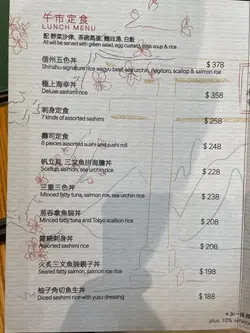 午市定食
LUNCH MENU
配 野菜沙律, 茶碗蒸蛋, 麵豉湯, 白飯
All will be served with green salad, egg custard, miso soup & rice
信州五色丼
Shinshu signature rice wagyu beef, sea urchin, negitoro, scallop & salmon roe
$ 378
極上海幸丼
Deluxe sashimi rice
$ 358
刺身定食
7 kinds of assorted sashimi
$ 258
壽司定食
8 pieces assorted sushi and sushi roll
$ 248
帆立貝, 三文魚
Scallop, salmon, sea urchin rice
$ 238
三色丼
Minced fatty tuna, salmon roe, sea urchin rice
$ 228
魚腩丼
Minced fatty tuna and Tokyo scallion rice
$ 208
刺身丼
Assorted sashimi rice
$ 208
火炙三文魚腩親子丼
Seared fatty salmon, salmon roe rice
$ 198
柚子角切魚生丼
Diced sashimi rice with yuzu dressing
$ 188
plus 10% service